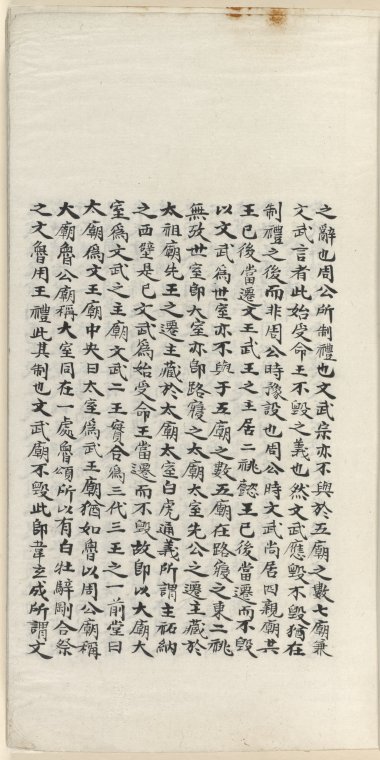 之辭也周公所制禮也文武宗亦不與於五廟之數七廟兼
文武言者此始受命王不毀之義也然文武應毀不毀猶在
制禮之後而非周公時豫設也周公時文武尚居四親廟其
王已後當遷文王武王之主居二祧懿王已後當遷而不毀
以文武為世室亦不與于五廟之數五廟在路寢之東二祧
無攷世室即大室亦即路寢之太廟太室先公之遷主藏於
太祖廟先王之遷主藏於太廟太室白虎通義所謂主祏納
之西壁是已文武為始受命王當遷而不毀故即以大廟大
室為文武之主廟文武二王實合為三代三王之一前堂曰
太廟為文王廟中央曰太室為武王廟猶如魯以周公廟稱
大廟魯公廟稱大室同在一處魯頌所以有白牡騂剛合祭
之文魯用王禮此其制也文武廟不毀此即韋玄成所謂文